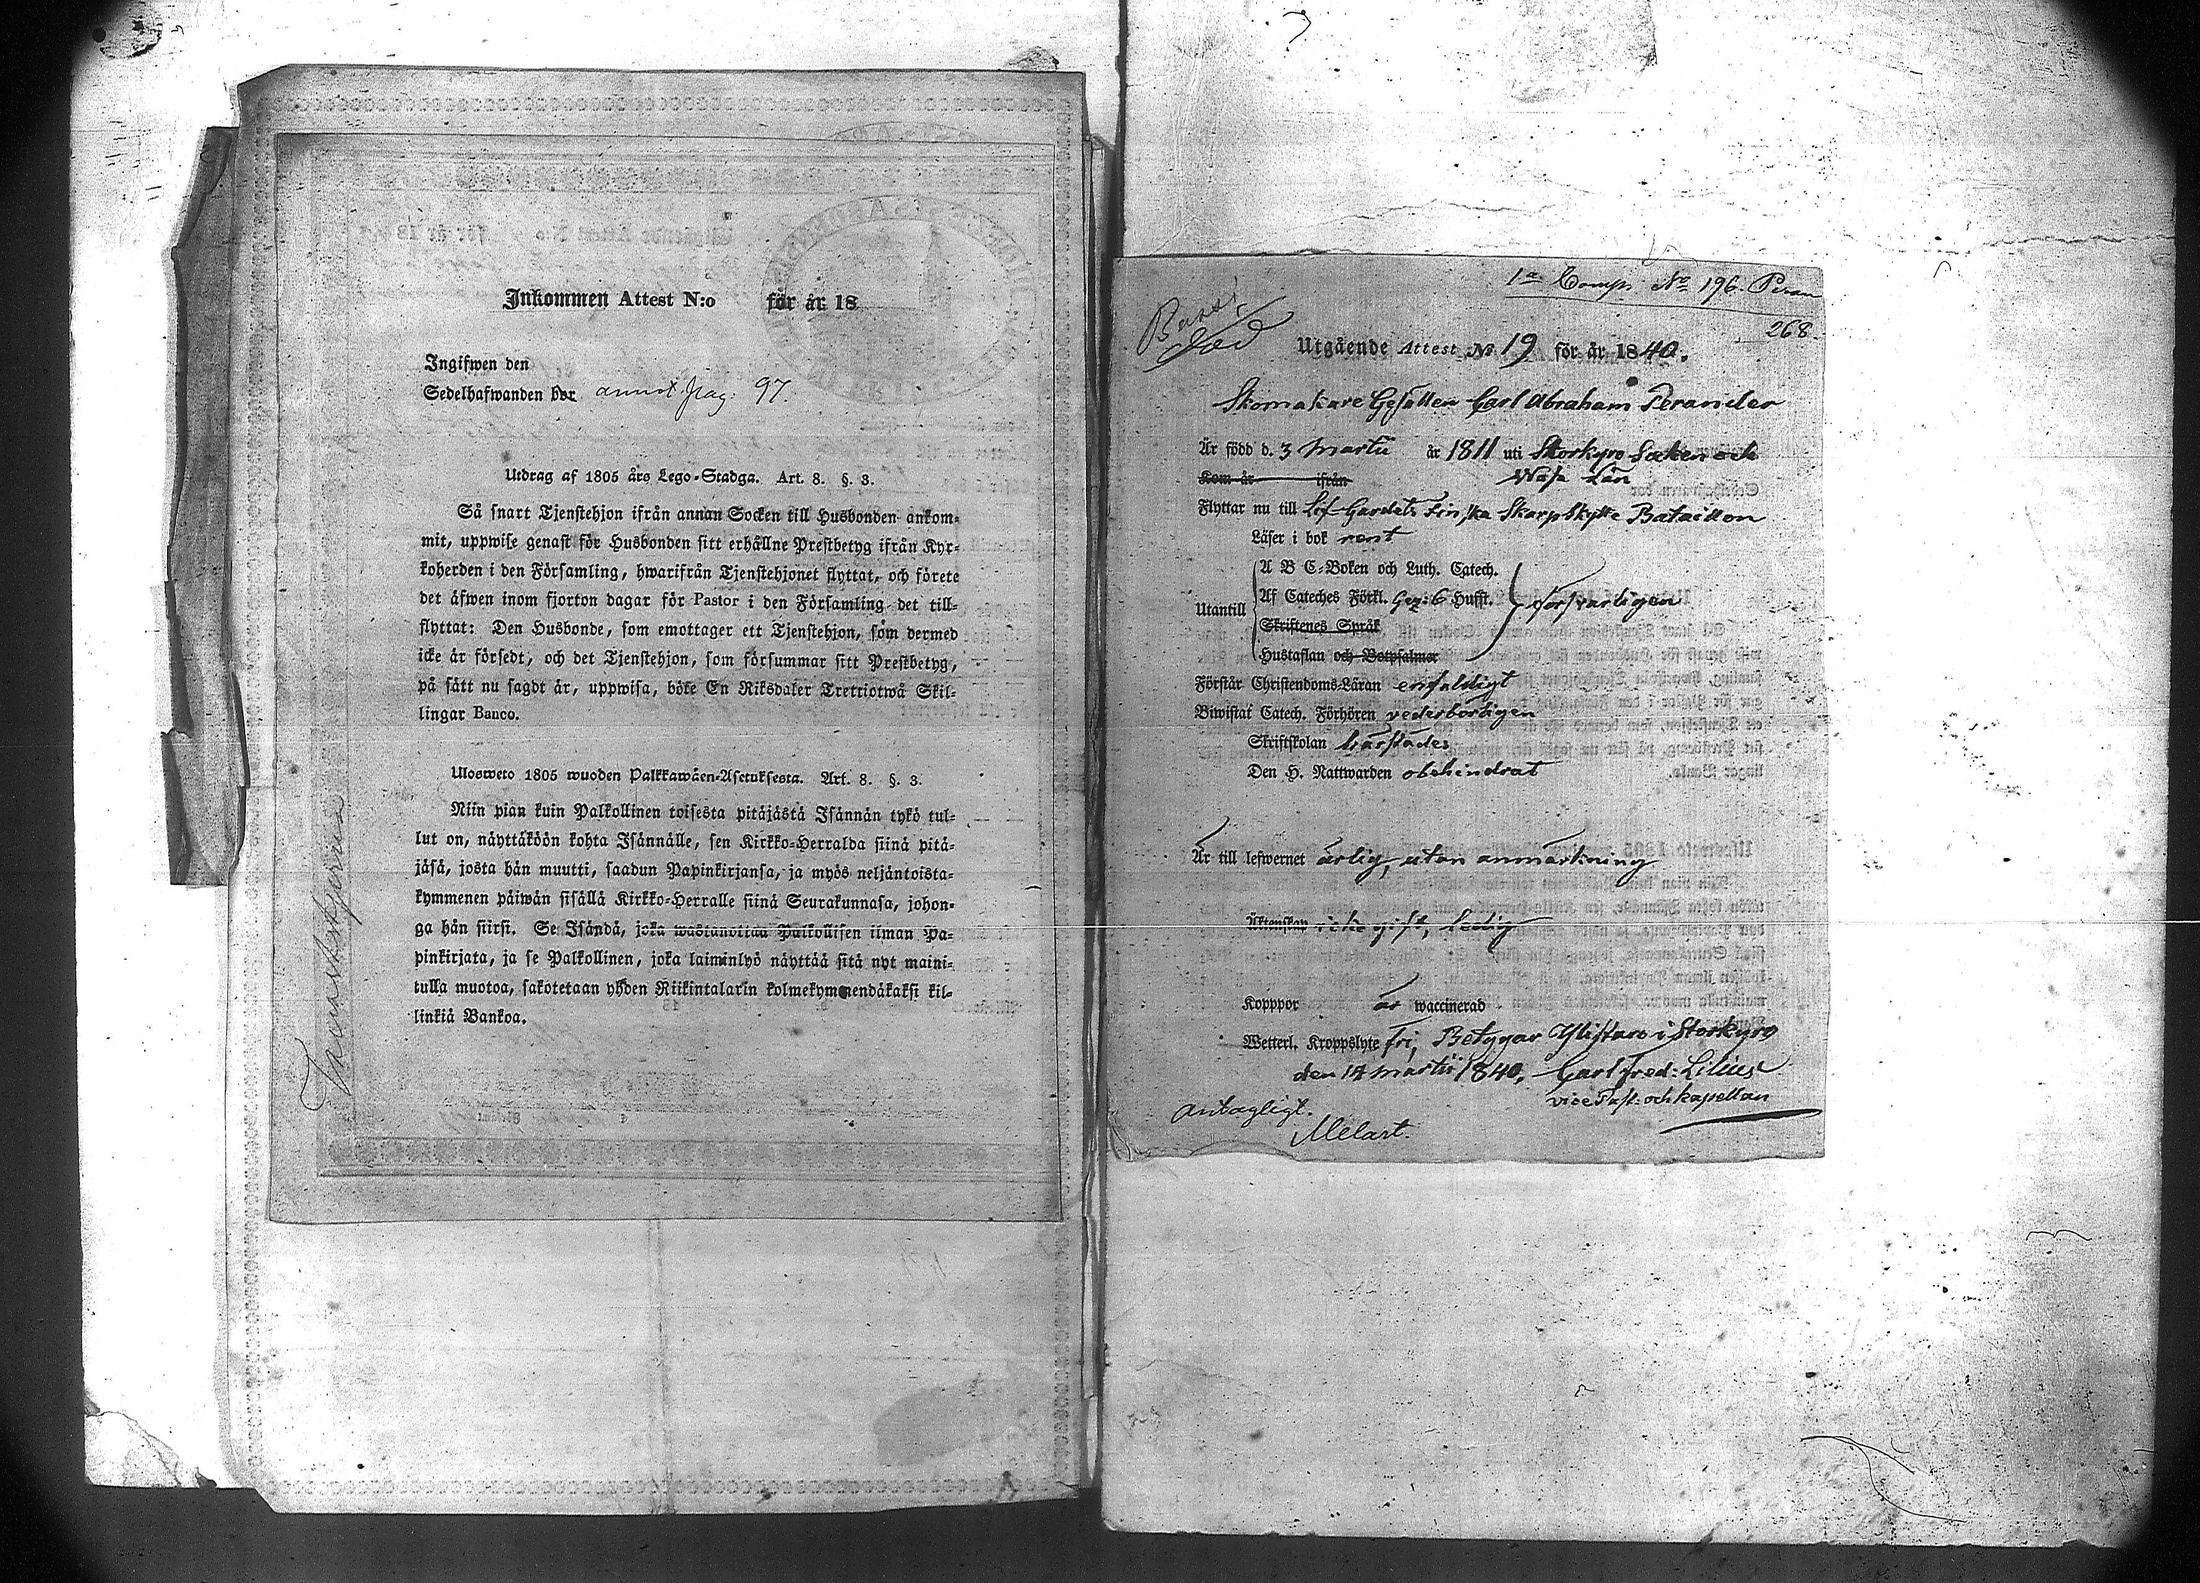 Inkommen Attest N:o för år 18
Ingifwen den
Sedelhafwanden bor annot pag: 97.
Utdrag af 1805 års Lego-Stadga. Art. 8. §. 3.
Så snart Tjenstehjon ifrån annan Socken till Husbonden ankom-
mit, uppwise genast för Husbonden sitt erhållne Prestbetyg ifrån Kyr-
koherden i den Församling, hwarifrån Tjenstehjonet flyttat, och förete
det äfwen inom fjorton dagar för Pastor i den Församling det till-
flyttat: Den Husbonde, som emottager ett Tjenstehjon, som dermed
icke är försedt, och det Tjenstehjon, som försummar sitt Prestbetyg,
på sätt nu sagdt är, uppwisa, böte En Riksdaler Trettiotwå Skil-
lingar Banco.
Ulosweto 1805 wuoden Palkkawäen-Asetuksesta. Art. 8. §. 3.
Niin pian kuin Palkollinen toisesta pitäjästä Isännän tykö tul-
lut on, näyttäköön kohta Isännälle, sen Kirkko-Herralda siinä pitä-
jäsä, josta hän muutti, saadun Papinkirjansa, ja myös neljäntoista-
kymmenen päiwän sisällä Kirkko-Herralle siinä Seurakunnasa, johon-
ga hän siirsi. Se Isändä, joka wastanottaa Palkollisen ilman Pa-
pinkirjata, ja se Palkollinen, joka laiminlyö näyttää sitä nyt maini-
tulla muotoa, sakotetaan yhden Riikintalarin kolmekymmendäkaksi kil-
linkiä Bankoa.
1a Comp. No 196. Peran
268.
Död
Utgående Attest No 19 för år 1840.
Skomakare Gesällen Carl Abraham Perander
Är född d. 3 Martii år 1811 uti Storkyro Socken och
Kom år ifrån Wasa Län
Flyttar nu till Lif-Gardets Finska Skarpskytte Bataillon
Läser i bok rent
A B C-Boken och Luth. Catech.
Utantill Af Cateches Förkl. Gez: 6 Hufst. försvarligen
Skriftenes Språk
Hustaflan och Botpsalmer
Förstår Christendoms-Läran enfaldigt
Biwistat Catech. Förhören vederbörligen
Skriftskolan härstädes
Den H. Nattwarden obehindrat
Är till lefwernet ärlig, utan anmärkning
Äktenskap icke gift, ledig
Kopppor är waccinerad
Wetterl. Kroppslyte fri, Betygar Ylistaro i Storkyro
den 14 Martii 1840. Carl Fred: Lilius
vice Past: och kapellan
antagligt.
Melart.